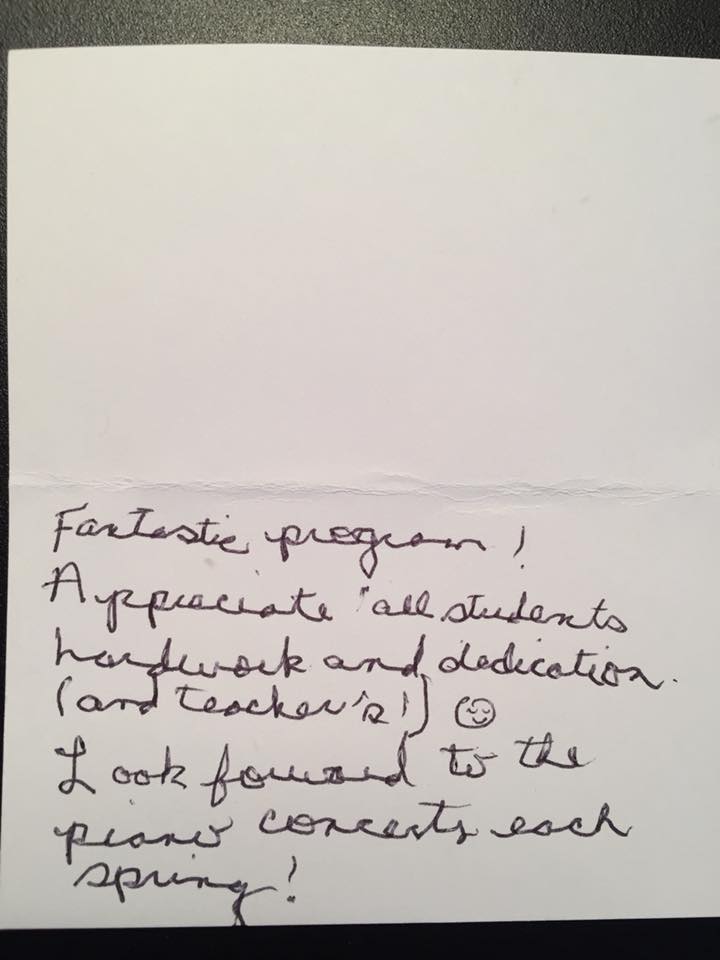 Fantastic program!
Appreciate all students
hardwork and dedication.
(and teacher's!) ☺
Look foward to the
piano concerts each
spring!